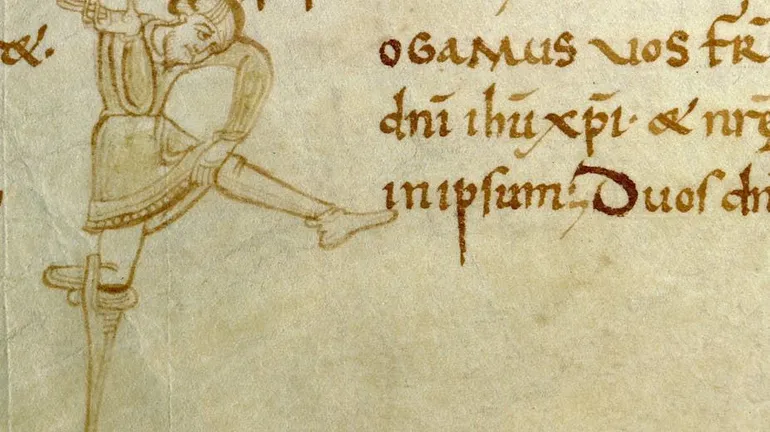 &.
OGAMUS UOS FR̄
dnī ihū xp̄i · & nr̄ę
inipsum; Duos dn